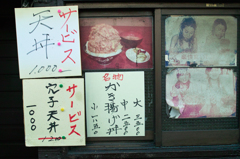 サービス
天丼
1.000
サービス
穴子天丼
1000
名物
かき揚げ丼
大
中
小